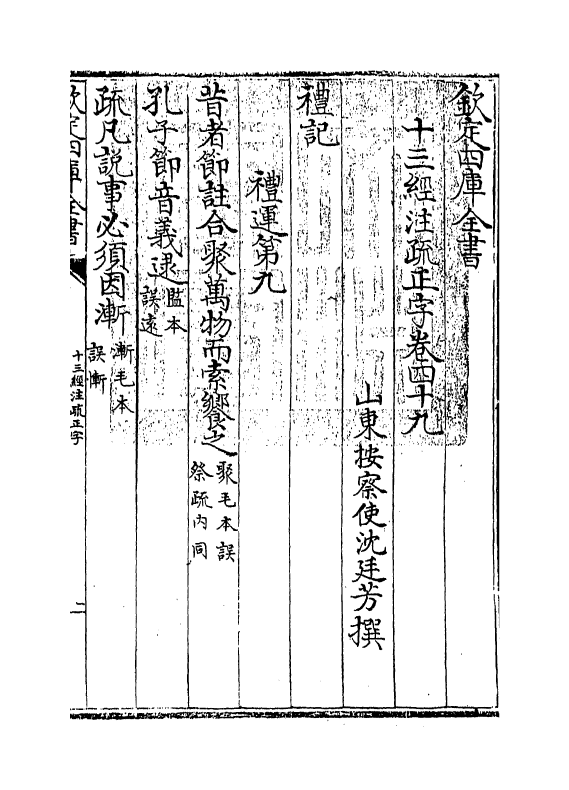 欽定四庫全書
十三經注疏正字卷四十九
山東按察使沈廷芳撰
禮記
禮運第九
昔者節註合聚萬物而索饗之聚毛本誤祭疏内同
孔子節音義逮監本誤遠
疏凡說事必須因漸漸毛本誤慚
欽定四庫全書
十三經注疏正字
二